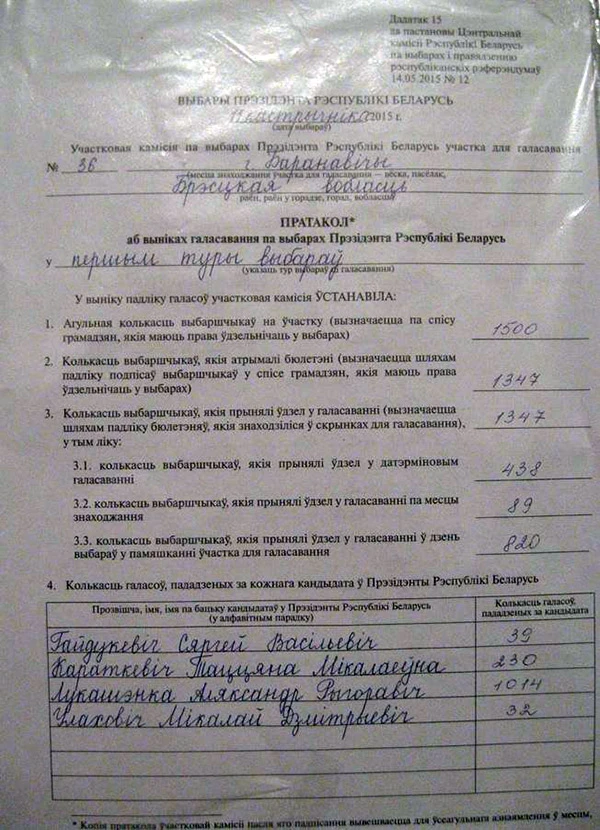 Дадатак 15
да пастановы Цэнтральнай
камісіі Рэспублікі Беларусь
па выбарах і правядзенню
рэспубліканскіх рэферэндумаў
14.05.2015 № 12
ВЫБАРЫ ПРЭЗІДЭНТА РЭСПУБЛІКІ БЕЛАРУСЬ
11 кастрычніка 2015 г.
(дата выбараў)
Участковая камісія па выбарах Прэзідэнта Рэспублікі Беларусь участка для галасавання
№ 36 г. Баранавічы
(месца знаходжання ўчастка для галасавання — вёска, пасёлак,
Брэсцкая вобласць
раён, раён у горадзе, горад, вобласць)
ПРАТАКОЛ*
аб выніках галасавання па выбарах Прэзідэнта Рэспублікі Беларусь
у першым туры выбараў
(указаць тур выбараў ці галасавання)
У выніку падліку галасоў участковая камісія ЎСТАНАВІЛА:
1. Агульная колькасць выбаршчыкаў на ўчастку (вызначаецца па спісу
грамадзян, якія маюць права ўдзельнічаць у выбарах) 1500
2. Колькасць выбаршчыкаў, якія атрымалі бюлетэні (вызначаецца шляхам
падліку подпісаў выбаршчыкаў у спісе грамадзян, якія маюць права
ўдзельнічаць у выбарах) 1347
3. Колькасць выбаршчыкаў, якія прынялі ўдзел у галасаванні (вызначаецца
шляхам падліку бюлетэняў, якія знаходзіліся ў скрынках для галасавання), 1347
у тым ліку:
3.1. колькасць выбаршчыкаў, якія прынялі ўдзел у датэрміновым
галасаванні 438
3.2. колькасць выбаршчыкаў, якія прынялі ўдзел у галасаванні па месцы
знаходжання 89
3.3. колькасць выбаршчыкаў, якія прынялі ўдзел у галасаванні ў дзень
выбараў у памяшканні ўчастка для галасавання 820
4. Колькасць галасоў, пададзеных за кожнага кандыдата ў Прэзідэнты Рэспублікі Беларусь
Прозвішча, імя, імя па бацьку кандыдатаў у Прэзідэнты Рэспублікі Беларусь
(у алфавітным парадку)
Колькасць галасоў,
пададзеных за кандыдата
Гайдукевіч Сяргей Васільевіч 39
Караткевіч Таццяна Мікалаеўна 230
Лукашэнка Аляксандр Рыгоравіч 1014
Улаховіч Мікалай Дзмітрыевіч 32
* Копія пратакола ўчастковай камісіі пасля яго падпісання вывешваецца для ўсеагульнага азнаямлення ў месцы,